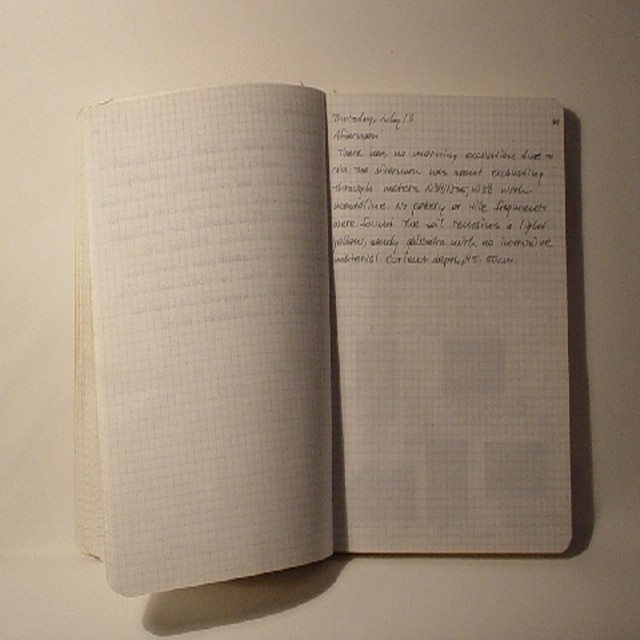 Thursday, July 13
Afternoon
There was no morning excavation due to
rain. The afternoon was spent excavating
through meters N34/N35, W188 with
No pottery or tile fragments
were found. The soil remains a light
yellow, sandy with no intrusive
material. Current depth, 45-50cm